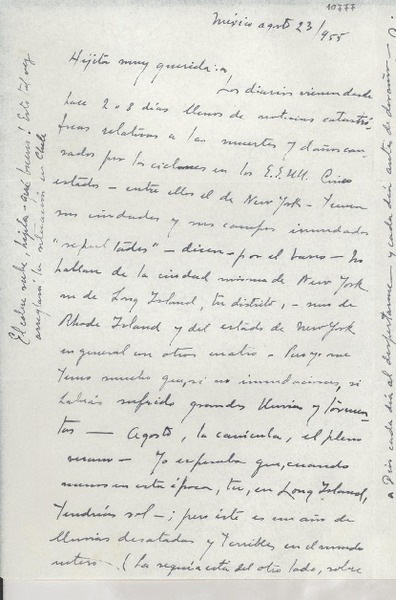 10777
México agosto 23/955
Hijita muy querida:
Los diarios vienen desde
hace 2 o 8 días llenos de noticias catastró
ficas relativas a las muertes y daños cau
sados por los ciclones en los E.E.U.U. Cinco
estados – entre ellos el de New York – tienen
sus ciudades y sus campos inundados
"sepultados" – dicen – por el barro – No
hablan de la ciudad misma de New York
ni de Long Island, tu distrito, – sino de
Rhode Island y del estado de New York
en general en otros cuatro – Pero yo me
temo mucho que, si no inundaciones, si
habrás sufrido grandes lluvias y tormen
tas — Agosto, la canícula, el pleno
verano – Yo esperaba que, cuando
menos en esta época, tú, en Long Island,
tendrías sol – ; pero éste es un año de
lluvias desatadas y terribles en el mundo
entero – (La sequía está del otro lado, sobre
El cobre sube, hijita ¡qué bueno! Esto tal vez
arreglará la situación en Chile
cada día al despertarme – y cada día antes de